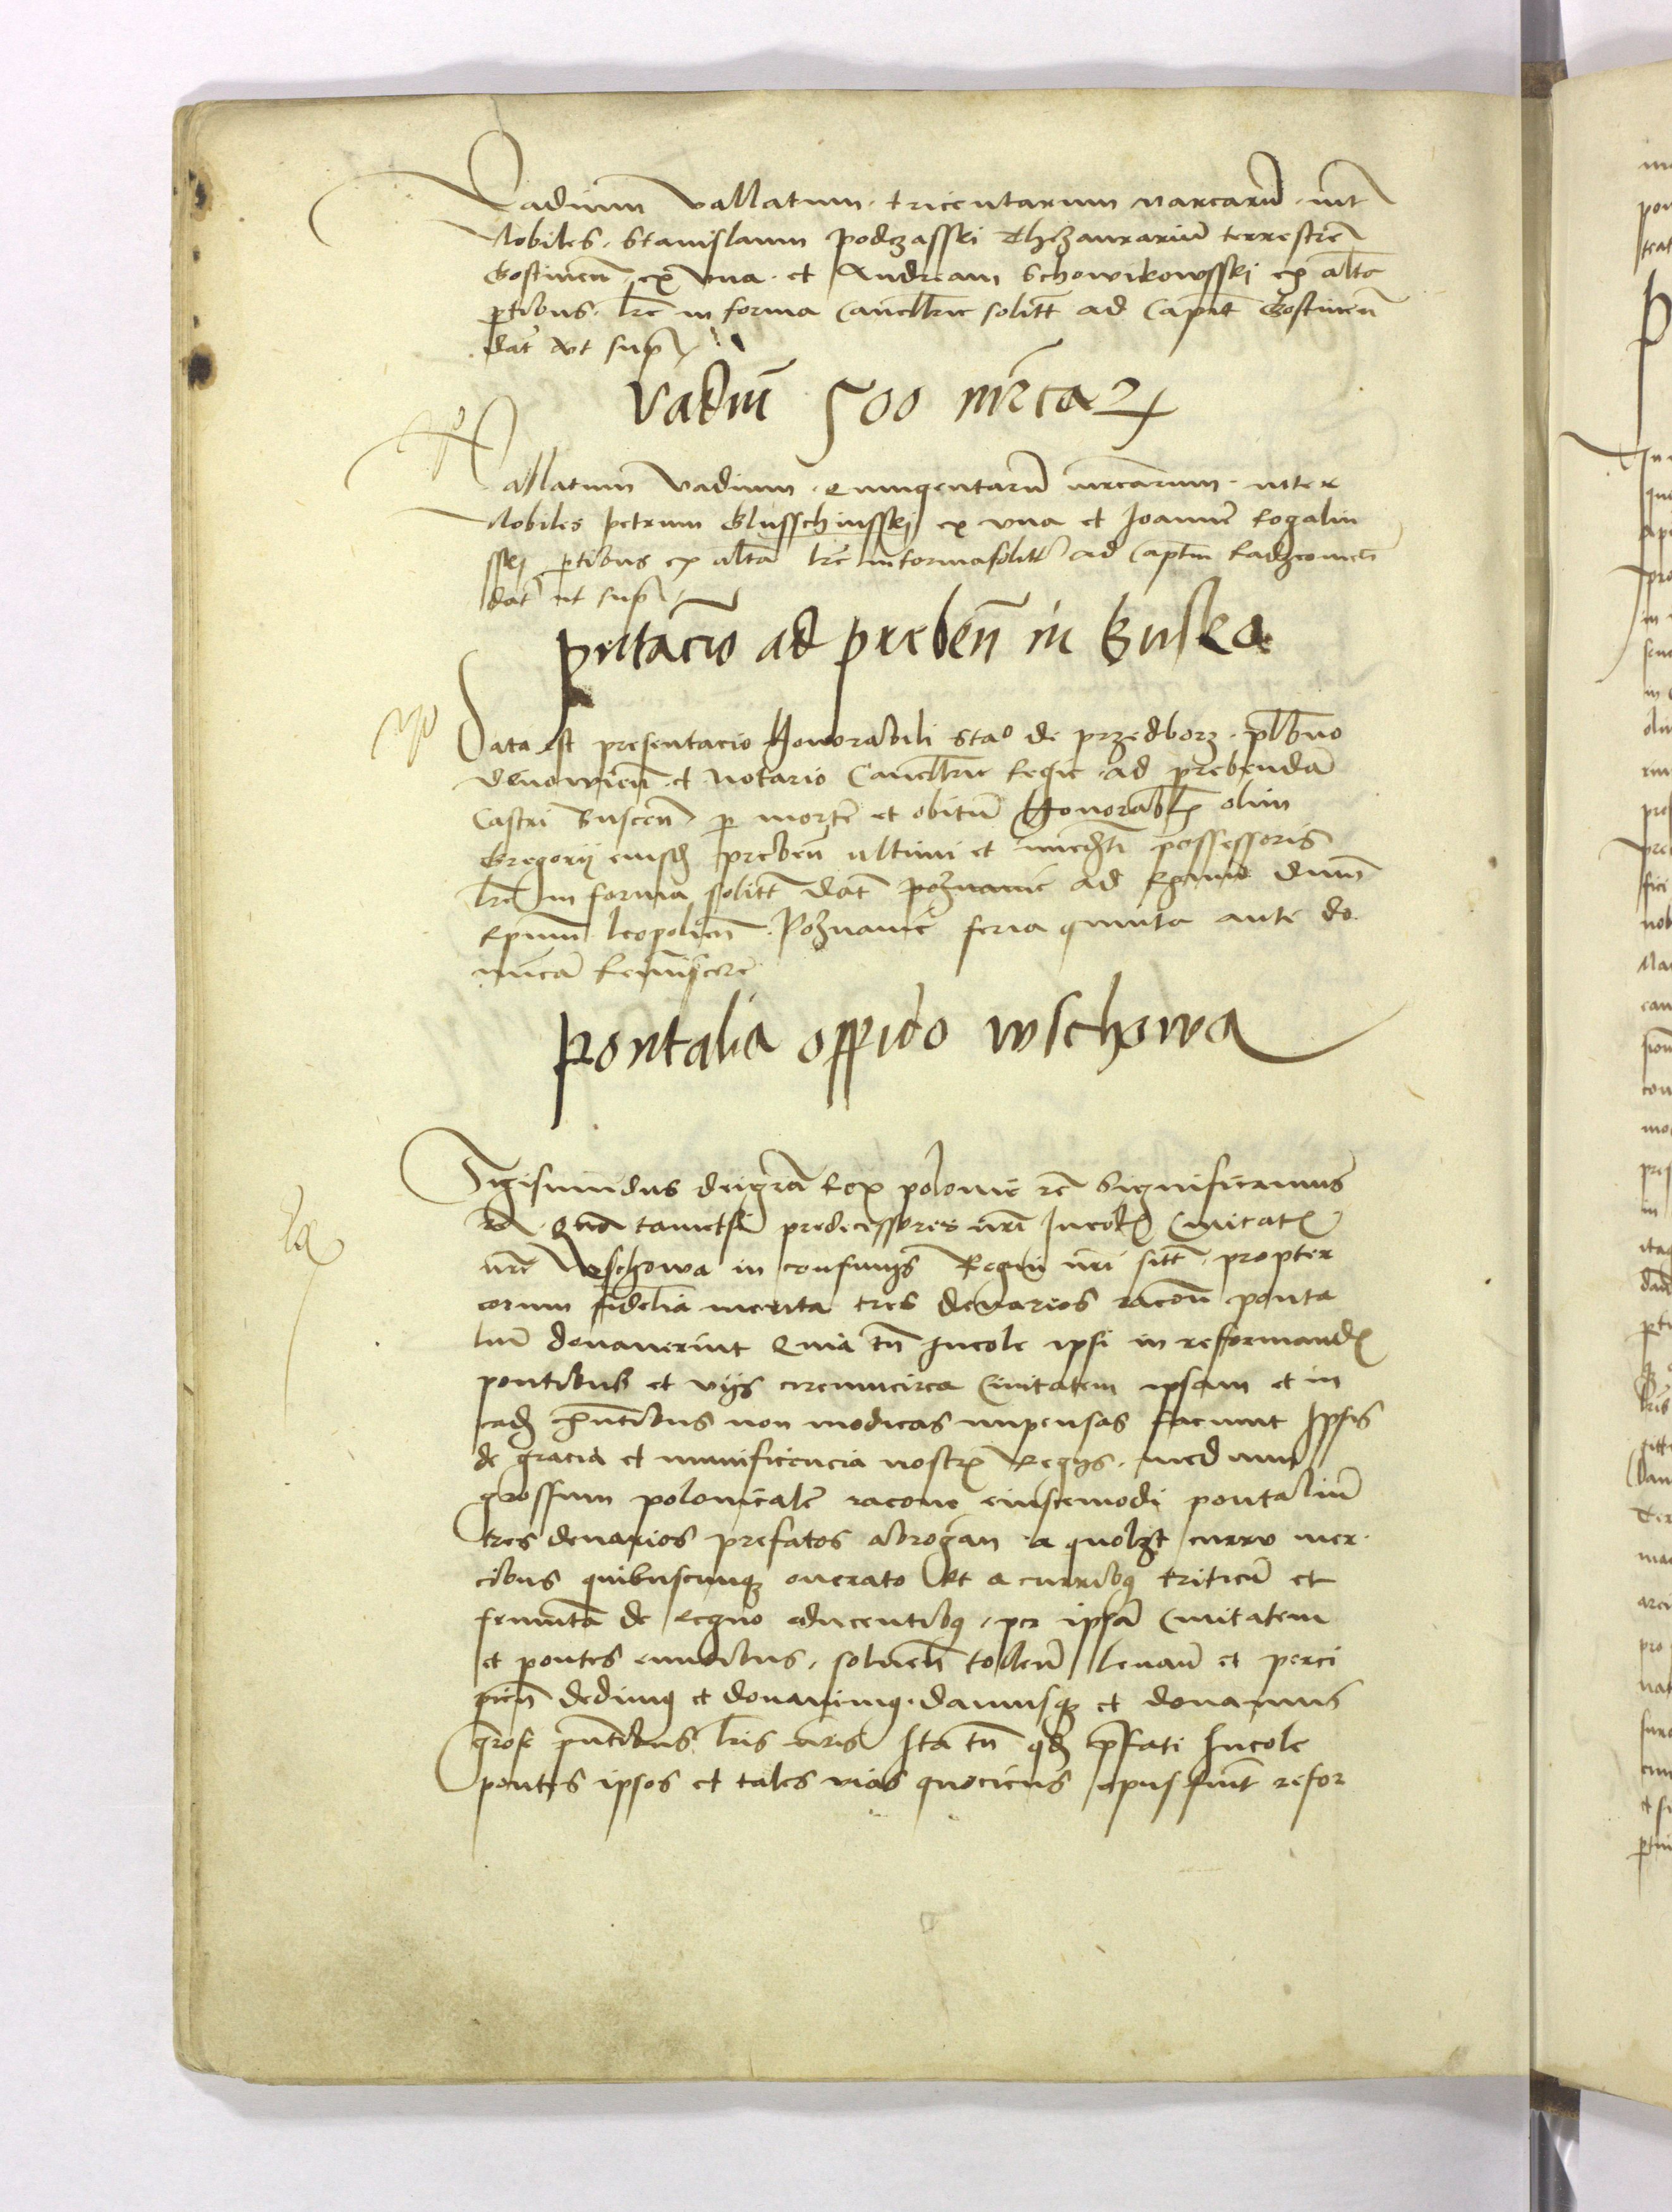 Vadium vallatum tricentarum marcarū int̄
Nobiles Stanislaum podczasski Thezaurariū terrestrē
Gostinen̄ ex vna et Andream Schowikowsski ex alta
ptibus lre in forma Cancellrie solitt ad Capit Gostinen̄
dat vt sup̄
Vadiū 500 mr̄caꝝ
Vallatum Vadium quingentarū mrcarum inter
Nobiles petrum Glusschinsski ex vna et Joannē Rogalin
sski ptibus ex alta lre in forma solitt ad Captm Radzeoien̄
dat ut sup̄
pn̄tacio ad preben̄ in Buska
Data est presentacio Honorabili Stao de przedborz plb̄no
et Notario Cancellrie Regie ad prebendā
Castri Buscen̄ p mortē et obitū Honorabl olim
Gregorij eiusdꝫ preben̄ ultimi et possessoris
lre in forma solitt dat poznanie ad dnūm
Epūm leopolien̄ Poznanie feria quinta ante do
nicā Reminiscere
pontalia oppido wschowa
Sigismundus dei grā Rex polonie rc̄ Significamus
rc̄ Quia tametsi predecessores nr̄i Incolis Ciuitatis
nr̄e Wschowa in confinijs Regni nr̄i sitt propter
eorum fidelia merita tres denarios racon̄ ponta
liū donauerint Quia tn̄ Incole ipsi in reformandis
pontibus et vijs circumcirca Ciuitatem ipsam et in
eadꝫ non modicas impensas faciunt Ipsis
de gracia et munificencia nostris Regijs medium
grossum polonicalē racone eiuscemodi pontaliū
tres denarios prefatos abrogan a quolꝫt curru mer
cibus quibuscunqꝫ onerato Et a curribꝰ triticū et
de Regno educentibꝰ per ipsā Ciuitatem
et pontes euntibus soluen̄ tollen̄ leuan̄ et perci
pien̄ dedimꝰ et donauimꝰ damusqꝫ et donamus
grose pn̄tibus lris nris Ita tn̄ qdꝫ pfati Incole
pontes ipsos et tales vias quociens opus fuit refor